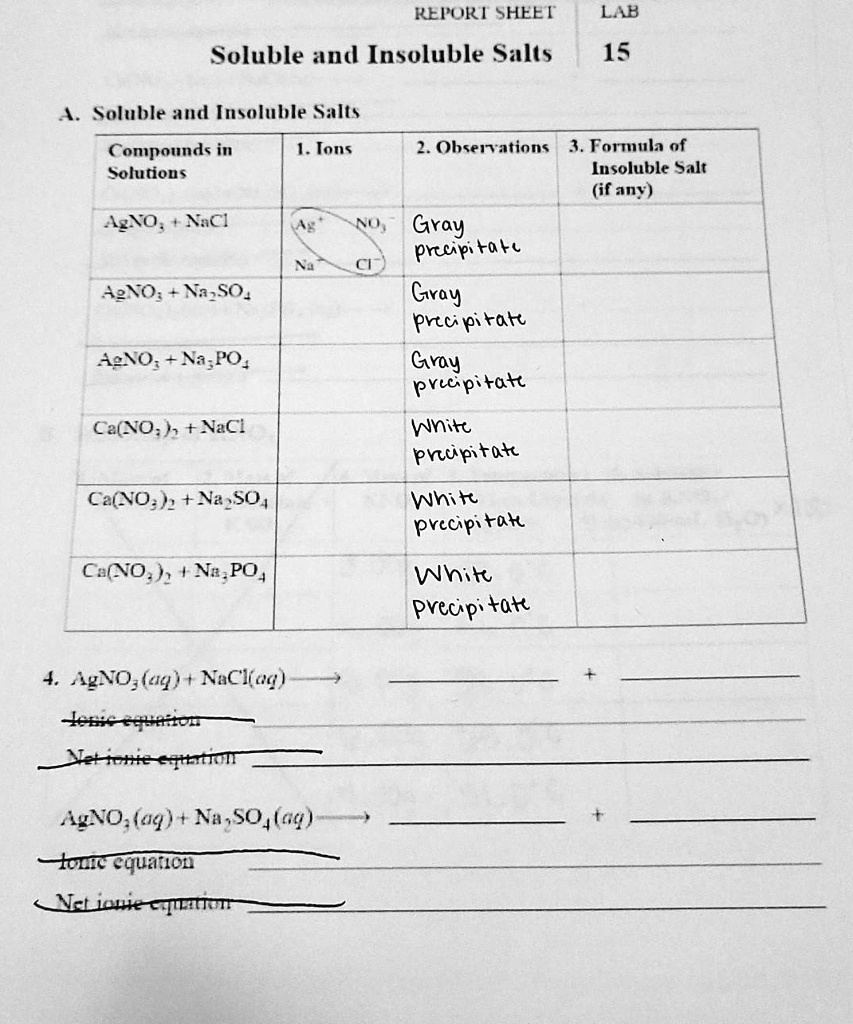 REPORT SHEET LAB
Soluble and Insoluble Salts 15
A. Soluble and Insoluble Salts
Compounds in Solutions 1. Ions 2. Observations 3. Formula of Insoluble Salt (if any)
AgNO₃ + NaCl Ag⁺ NO₃⁻ Gray precipitate
Na⁺ Cl⁻
AgNO₃ + Na₂SO₄ Gray precipitate
AgNO₃ + Na₃PO₄ Gray precipitate
Ca(NO₃)₂ + NaCl White precipitate
Ca(NO₃)₂ + Na₂SO₄ White precipitate
Ca(NO₃)₂ + Na₃PO₄ White precipitate
4. AgNO₃(aq) + NaCl(aq) ⟶ +
Ionic equation
Net ionic equation
AgNO₃(aq) + Na₂SO₄(aq) ⟶ +
Ionic equation
Net ionic equation